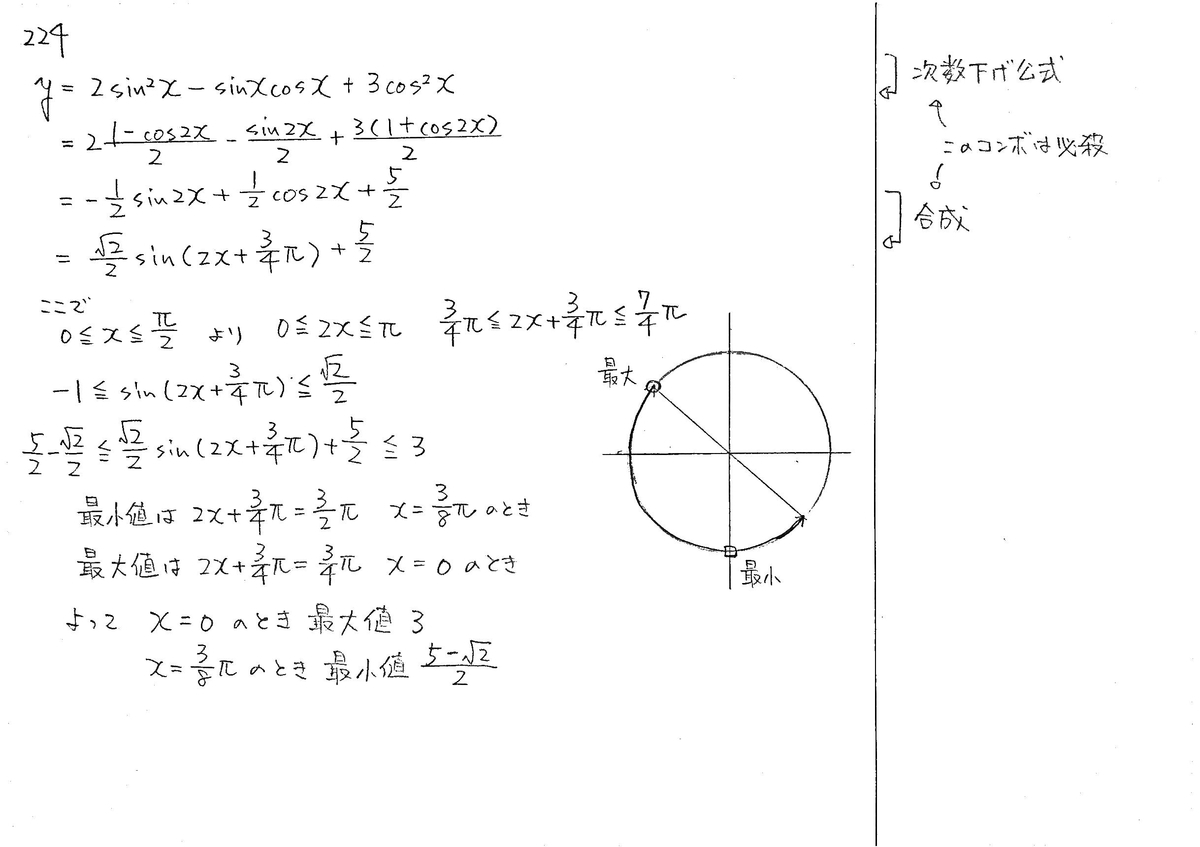 224
y = 2sin²x − sinxcosx + 3cos²x
= 2 (1−cos2x)/2 − sin2x/2 + 3(1+cos2x)/2
= −1/2 sin2x + 1/2 cos2x + 5/2
= √2/2 sin(2x+3/4π) + 5/2
ここで
0≦x≦π/2 より 0≦2x≦π 3/4π≦2x+3/4π≦7/4π
−1≦sin(2x+3/4π)≦√2/2
5/2−√2/2≦√2/2 sin(2x+3/4π)+5/2≦3
最小値は 2x+3/4π=3/2π x=3/8π のとき
最大値は 2x+3/4π=3/4π x=0 のとき
よって x=0 のとき 最大値 3
x=3/8π のとき 最小値 (5−√2)/2
最大
最小
次数下げ公式
このコンボは必殺
合成